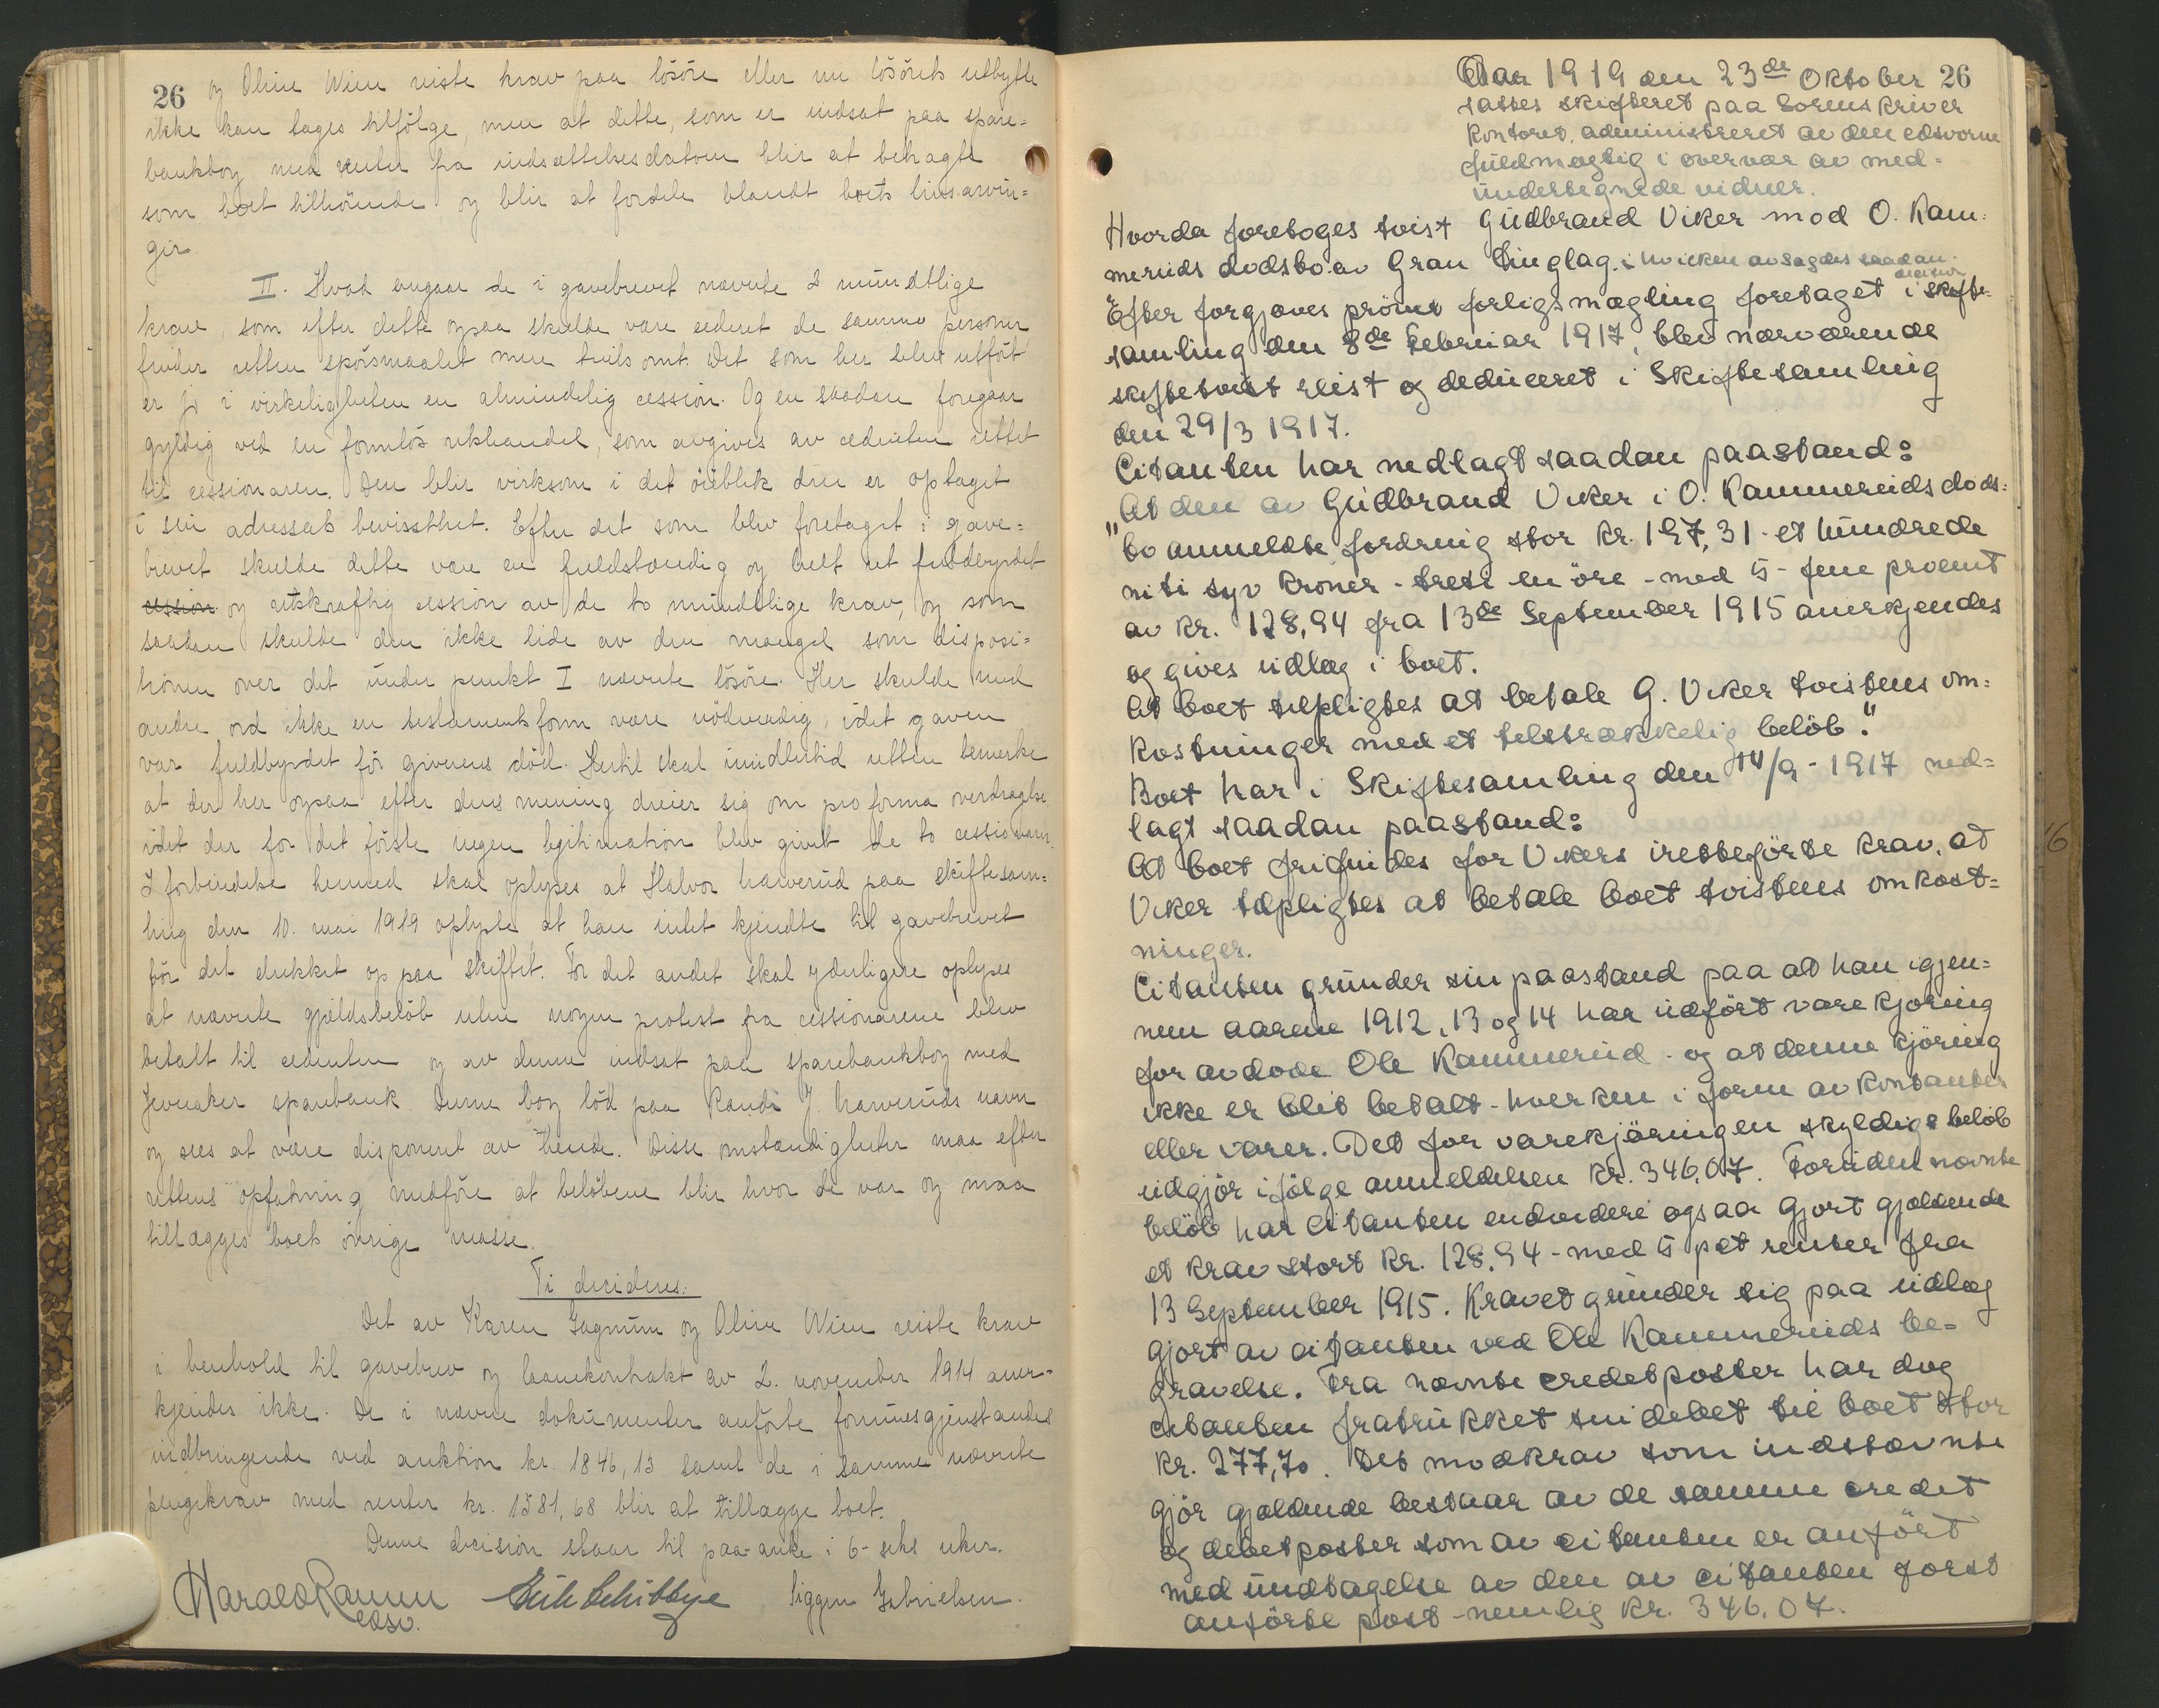 26
og Oline Wien reiste krav paa lösöre eller nu lösörets utbytte
ikke kan tages tilfölge, men at dette, som er indsat paa spare=
bankbog med renter fra indsættelsesdatoen blir at betragte
som boet tilhörende og blir at fordele blandt boets livsarvin=
ger.
II. Hvad angaar de i gavebrevet nævnte 2 mundtlige
krav, som efter dette ogsaa skulde være cederet de samme personer
finder retten spörsmaalet mere tvilsomt. Det som her blev utfört
er jo i virkeligheten en almindelig cession. Og en saadan foregaar
gyldig ved en formlös rekhandel, som avgives av cedenten rettet
til cessionaren. Den blir virksom i det öieblik den er optaget
i sin adressats bevissthet. Efter det som blev foretaget i gave=
brevet skulde dette være en fuldstændig og helt ut fuldbyrdet
cession og retskraftig cession av de to mundtlige krav, og som
saadan skulde den ikke lide av den mangel som disposi=
tionen over det under punkt I nævnte lösöre. Her skulde med
andre ord ikke en testamentsform være nödvendig, idet gaven
var fuldbyrdet för giverens död. Hertil skal imidlertid retten bemerke
at det her ogsaa efter dens mening dreier sig om pro forma overdragelse
idet der for det förste ingen legitimation blev givet de to cessionarer.
I forbindelse hermed skal oplyses at Halvor Harverud paa skiftesam=
ling den 10. mai 1919 oplyste at han intet kjendte til gavebrevet
för det dukket op paa skiftet. For det andet skal yderligere oplyses
at nævnte gjældsbelöb uten nogen protest fra cessionarene blev
betalt til cedenten og av denne indsat paa sparebankbog med
Jevnaker sparebank. Denne bog löd paa Randi J. Harveruds navn
og sees at være disponert av hende. Disse omstændigheter maa efter
rettens opfatning medföre at belöbene blir hvor de var og maa
tillægges boets övrige masse.
Ti decideres:
Det av Karen Gagnum og Oline Wien reiste krav
i henhold til gavebrev og laanekontrakt av 2. november 1914 aner=
kjendes ikke. De i nævne dokumenter anförte formuesgjenstandes
indbringende ved auktion kr. 1846,13 samt de i samme nævnte
pengekrav med renter kr. 1581,68 blir at tillægge boet.
Denne decision staar til paa-anke i 6- seks uker.
Harald Ramm Erik Schibbye Siggen Gabrielsen.
edsv.
Aar 1919 den 23de Oktober 26
sattes skifteret paa Sorenskriver
kontoret, administreret av den edsvorne
fuldmægtig i overvær av med=
undertegnede vidner.
Hvorda foretoges tvist Gudbrand Viker mod O. Kam=
meruds dødsbo av Gran Tinglag. i hvilken avsagdes saadan
decision
Efter forgjæves prövet forligsmægling foretaget i skifte=
samling den 8de Februar 1917, blev nærværende
skiftetvist reist og deduceret i Skiftesamling
den 29/3 1917.
Citanten har nedlagt saadan paastand:
"At den av Gudbrand Viker i O. Kammeruds døds=
bo anmeldte fordring stor kr. 197,31 - et hundrede
niti syv kroner - treti en öre - med 5 - fem procent
av kr. 128,94 fra 13de September 1915 anerkjendes
og gives udlæg i boet.
At boet tilpligtes at betale G. Viker tvistens om=
kostninger med et tilstrækkelig belöb."
Boet har i Skiftesamling den 14/9 - 1917 ned=
lagt saadan paastand:
At boet frifindes for Vikers iretteförte krav, at
Viker tilpligtes at betale boet tvistens omkost=
ninger.
Citanten grunder sin paastand paa at han igjen=
nem aarene 1912, 13 og 14 har udfört varekjöring
for avdøde Ole Kammerud - og at denne kjöring
ikke er blit betalt - hverken i form av kontanter
eller varer. Det for varekjöringen skyldige belöb
udgjör ifölge anmeldelsen kr. 346,07. Foruden nævnte
belöb har citanten endvidere ogsaa gjort gjældende
et krav stort kr. 128,94 - med 5 pct renter fra
13 September 1915. Kravet grunder sig paa udlæg
gjort av citanten ved Ole Kammeruds be=
gravelse. Fra nævnte creditposter har dog
citanten fratrukket sin debet til boet stor
kr. 277,70. Det modkrav som indstævnte
gjör gjældende bestaar av de samme credit
og debetposter som av citanten er anfört
med undtagelse av den av citanten först
anförte post - nemlig kr. 346,07.